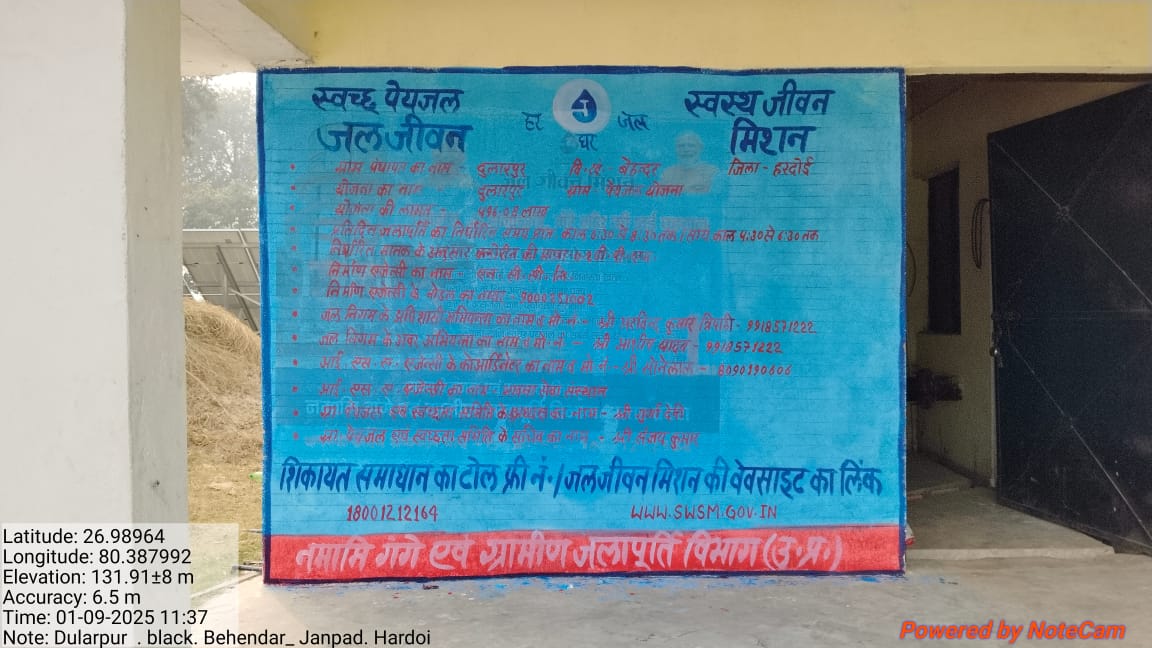 स्वच्छ पेयजल हर घर जल स्वस्थ जीवन
जल जीवन मिशन
• ग्राम पंचायत का नाम - दुलारपुर वि. ख. बेहन्दर जिला - हरदोई
• योजना का नाम दुलारपुर ग्राम पेयजल योजना
• योजना की लागत -
• प्रतिदिन जलापूर्ति का निर्धारित समय प्रातः काल 6:30 से 8:30 तक / सायं काल 4:30 से 6:30 तक
• निर्धारित मानक के अनुसार क्लोरीन की
• निर्माण एजेन्सी का नाम -
• निर्माण एजेन्सी के नोडल का नाम -
• जल निगम के अधिशासी अभियन्ता का नाम व मो नं - श्री कुमार त्रिपाठी - 9918571222
• जल निगम के अभियन्ता का नाम व मो नं - श्री - 9918571222
• आई. एस. ए. एजेन्सी के कोआर्डिनेटर का नाम व मो नं - श्री - 8090190606
• आई. एस. ए. एजेन्सी का नाम - सेवा संस्थान
• ग्रा. पेयजल एवं स्वच्छता समिति के अध्यक्ष का नाम - श्री देवी
• ग्रा. पेयजल एवं स्वच्छता समिति के सचिव का नाम - श्री संजय कुमार
शिकायत समाधान का टोल फ्री नं. / जल जीवन मिशन की वेबसाइट का लिंक
18001212164 WWW.SWSM.GOV.IN
नमामि गंगे एवं ग्रामीण जलापूर्ति विभाग (उ.प्र.)
Latitude: 26.98964
Longitude: 80.387992
Elevation: 131.91±8 m
Accuracy: 6.5 m
Time: 01-09-2025 11:37
Note: Dularpur . black. Behendar_ Janpad. Hardoi
Powered by NoteCam